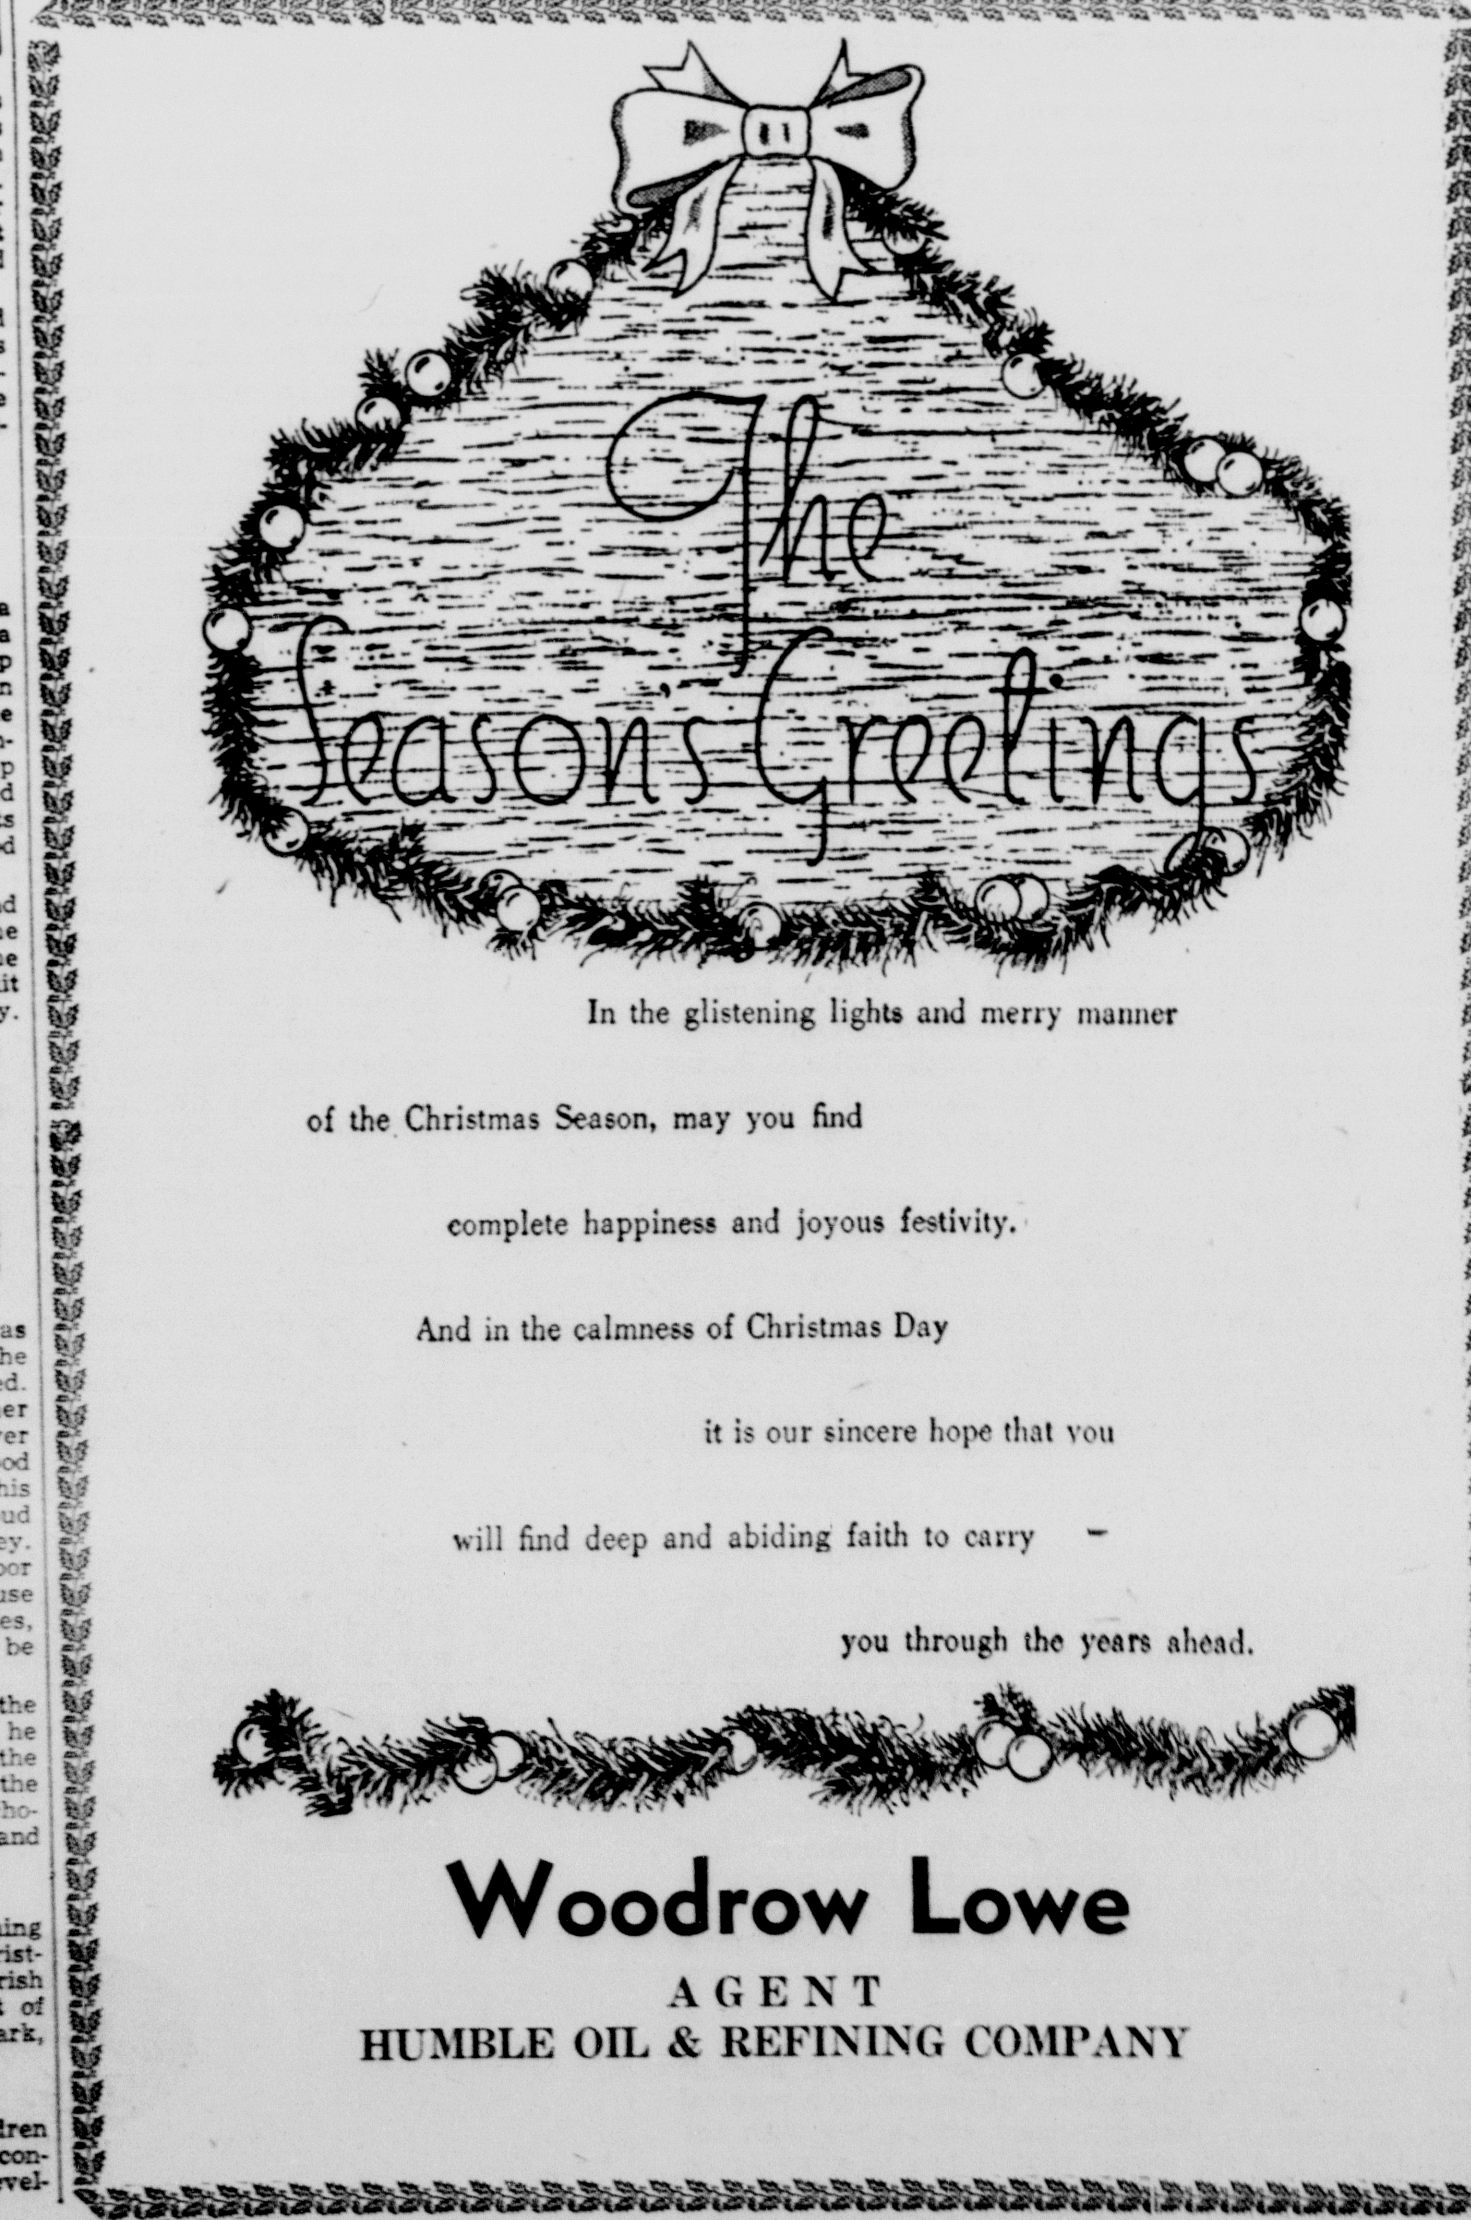 The
Season's Greetings
In the glistening lights and merry manner
of the Christmas Season, may you find
complete happiness and joyous festivity.
And in the calmness of Christmas Day
it is our sincere hope that you
will find deep and abiding faith to carry –
you through the years ahead.
Woodrow Lowe
AGENT
HUMBLE OIL & REFINING COMPANY